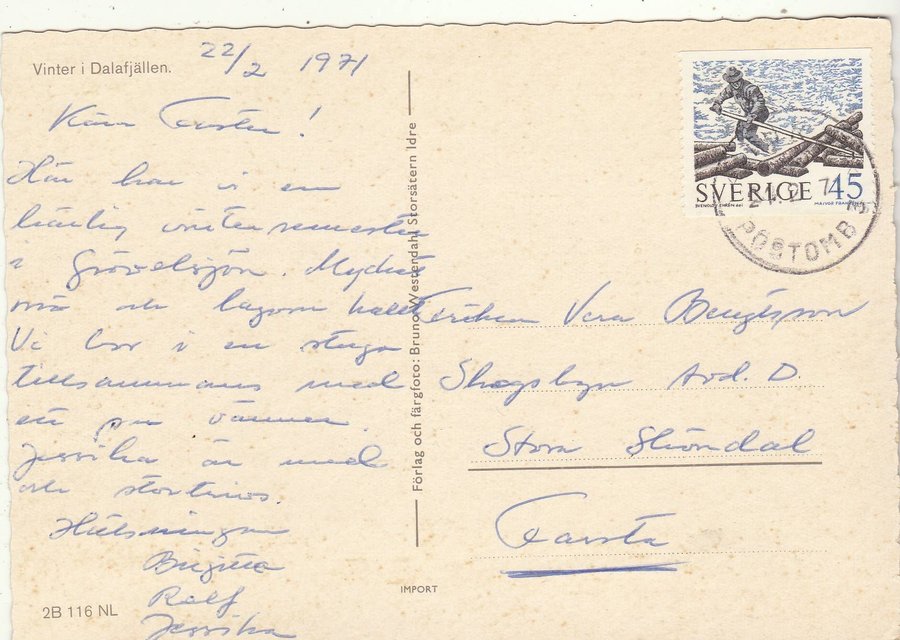 Vinter i Dalafjällen.
22/2 1971
Kära Faster!
Här har vi en
härlig vintersemester
i Grövelsjön. Mycket
snö och lagom kallt
Vi bor i en stuga
tillsammans med
ett par vänner.
Jessika är med
och stortrivs.
Hälsningar
Birgitta
Rolf
Jessika
2B 116 NL
Förlag och färgfoto: Bruno Westerdahl Storsätern Idre
IMPORT
SVERIGE 45
PÖSTOMB
Fröken Vera Bengtsson
Skogsbyn Avd. D.
Stora Sköndal
Farsta